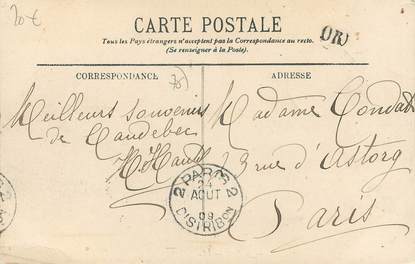 20 €
CARTE POSTALE
Tous les Pays étrangers n'acceptent pas la Correspondance au recto.
(Se renseigner à la Poste).
OR
CORRESPONDANCE
ADRESSE
Meilleurs souvenirs
de Caudebec
Madame Condat
23 rue d'Astorg
Paris
PARIS
2 24 2
AOUT
08
DISTRIBON